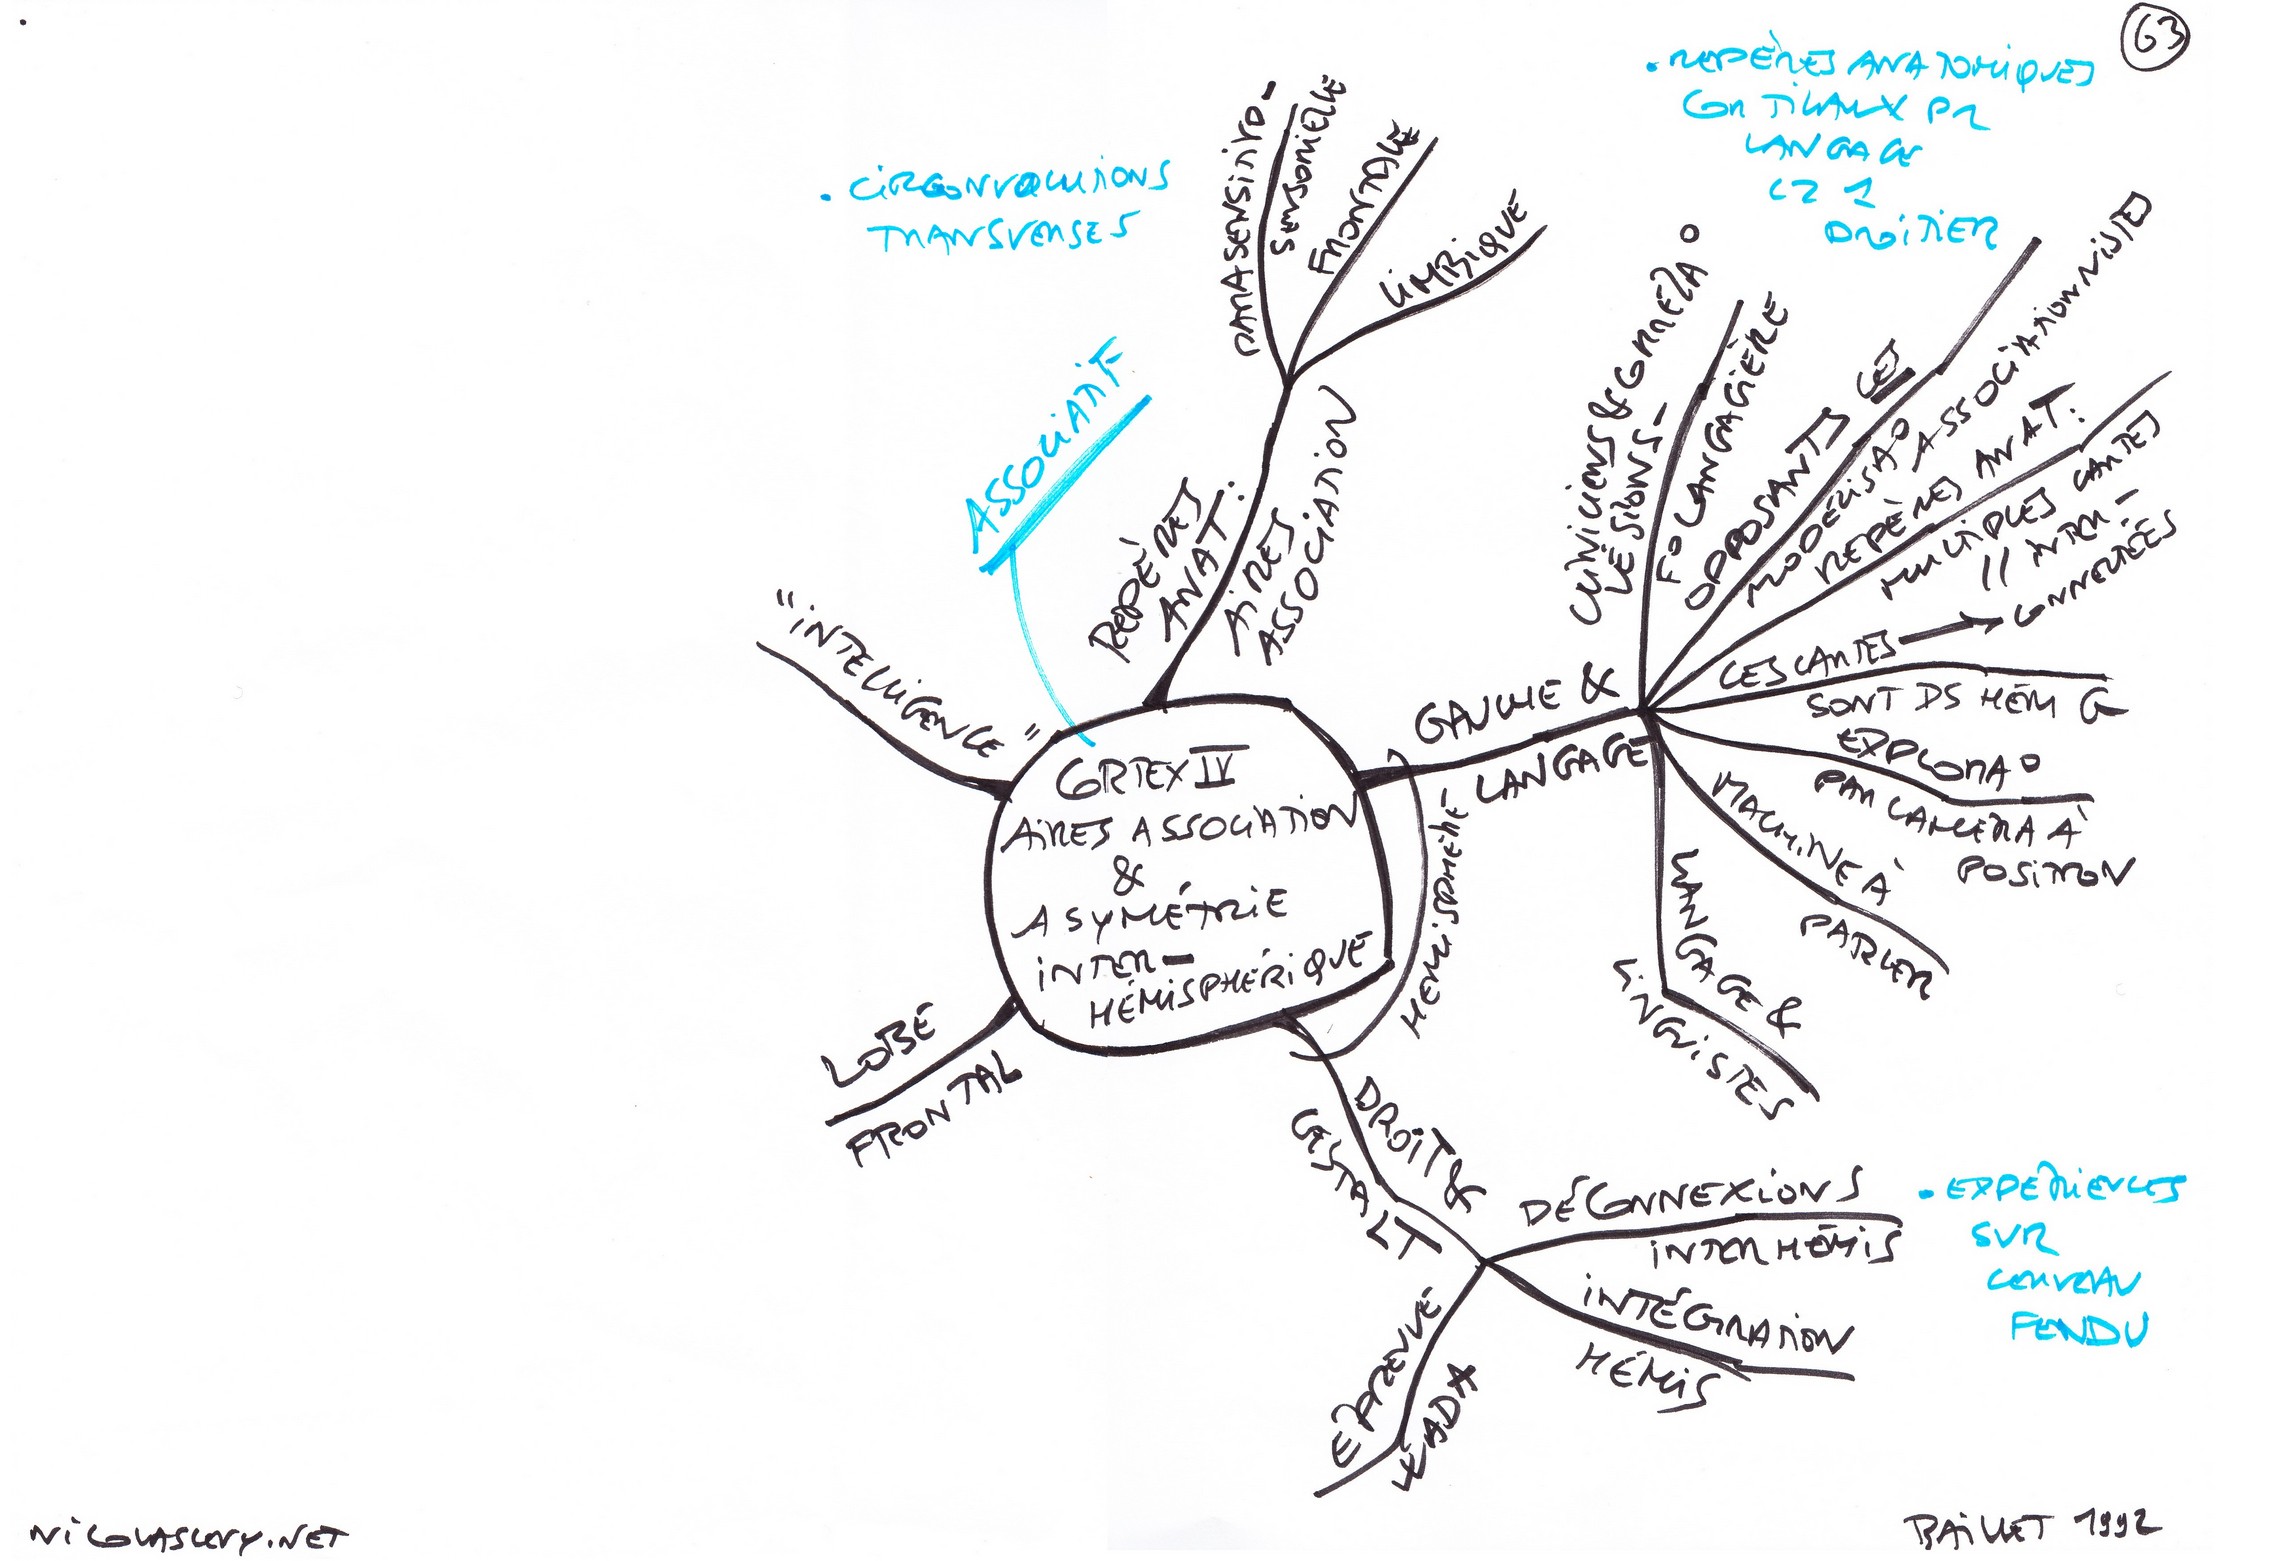 63
• REPÈRES ANATOMIQUES
CORTICAUX PR
LANGAGE
CZ 1
DROITIER
• CIRCONVOLUTIONS
TRANSVERSES
ASSOCIATIF
PARASENSITIVO-
SENSORIELLE
FRONTALE
LIMBIQUE
REPÈRES
ANAT:
AIRES
ASSOCIATION
"INTELLIGENCE"
CORTEX IV
AIRES ASSOCIATION
&
ASYMÉTRIE
INTER-
HÉMISPHÉRIQUE
LOBE
FRONTAL
HÉMISPHÈRE
GAUCHE &
LANGAGE
CLINICIENS & CORRÉLA°
LÉSIONS-
F° LANGAGIÈRE
OPPOSANTS LES
MODÉLISA° ASSOCIATIONNISTES
REPÈRES ANAT:
MULTIPLES CARTES
// INTER-
CONNECTÉES
LES CARTES
SONT DS HÉM G
EXPLORA°
PAR CAMÉRA À
POSITRON
MACHINE À
PARLER
LANGAGE &
LINGUISTES
DROIT &
GESTALT
DÉCONNEXIONS
INTER HÉMIS
• EXPÉRIENCES
SUR
CERVEAU
FENDU
INTÉGRATION
HÉMIS
ÉPREUVE
WADA
NICOLASLEVY.NET
BAILLET 1992